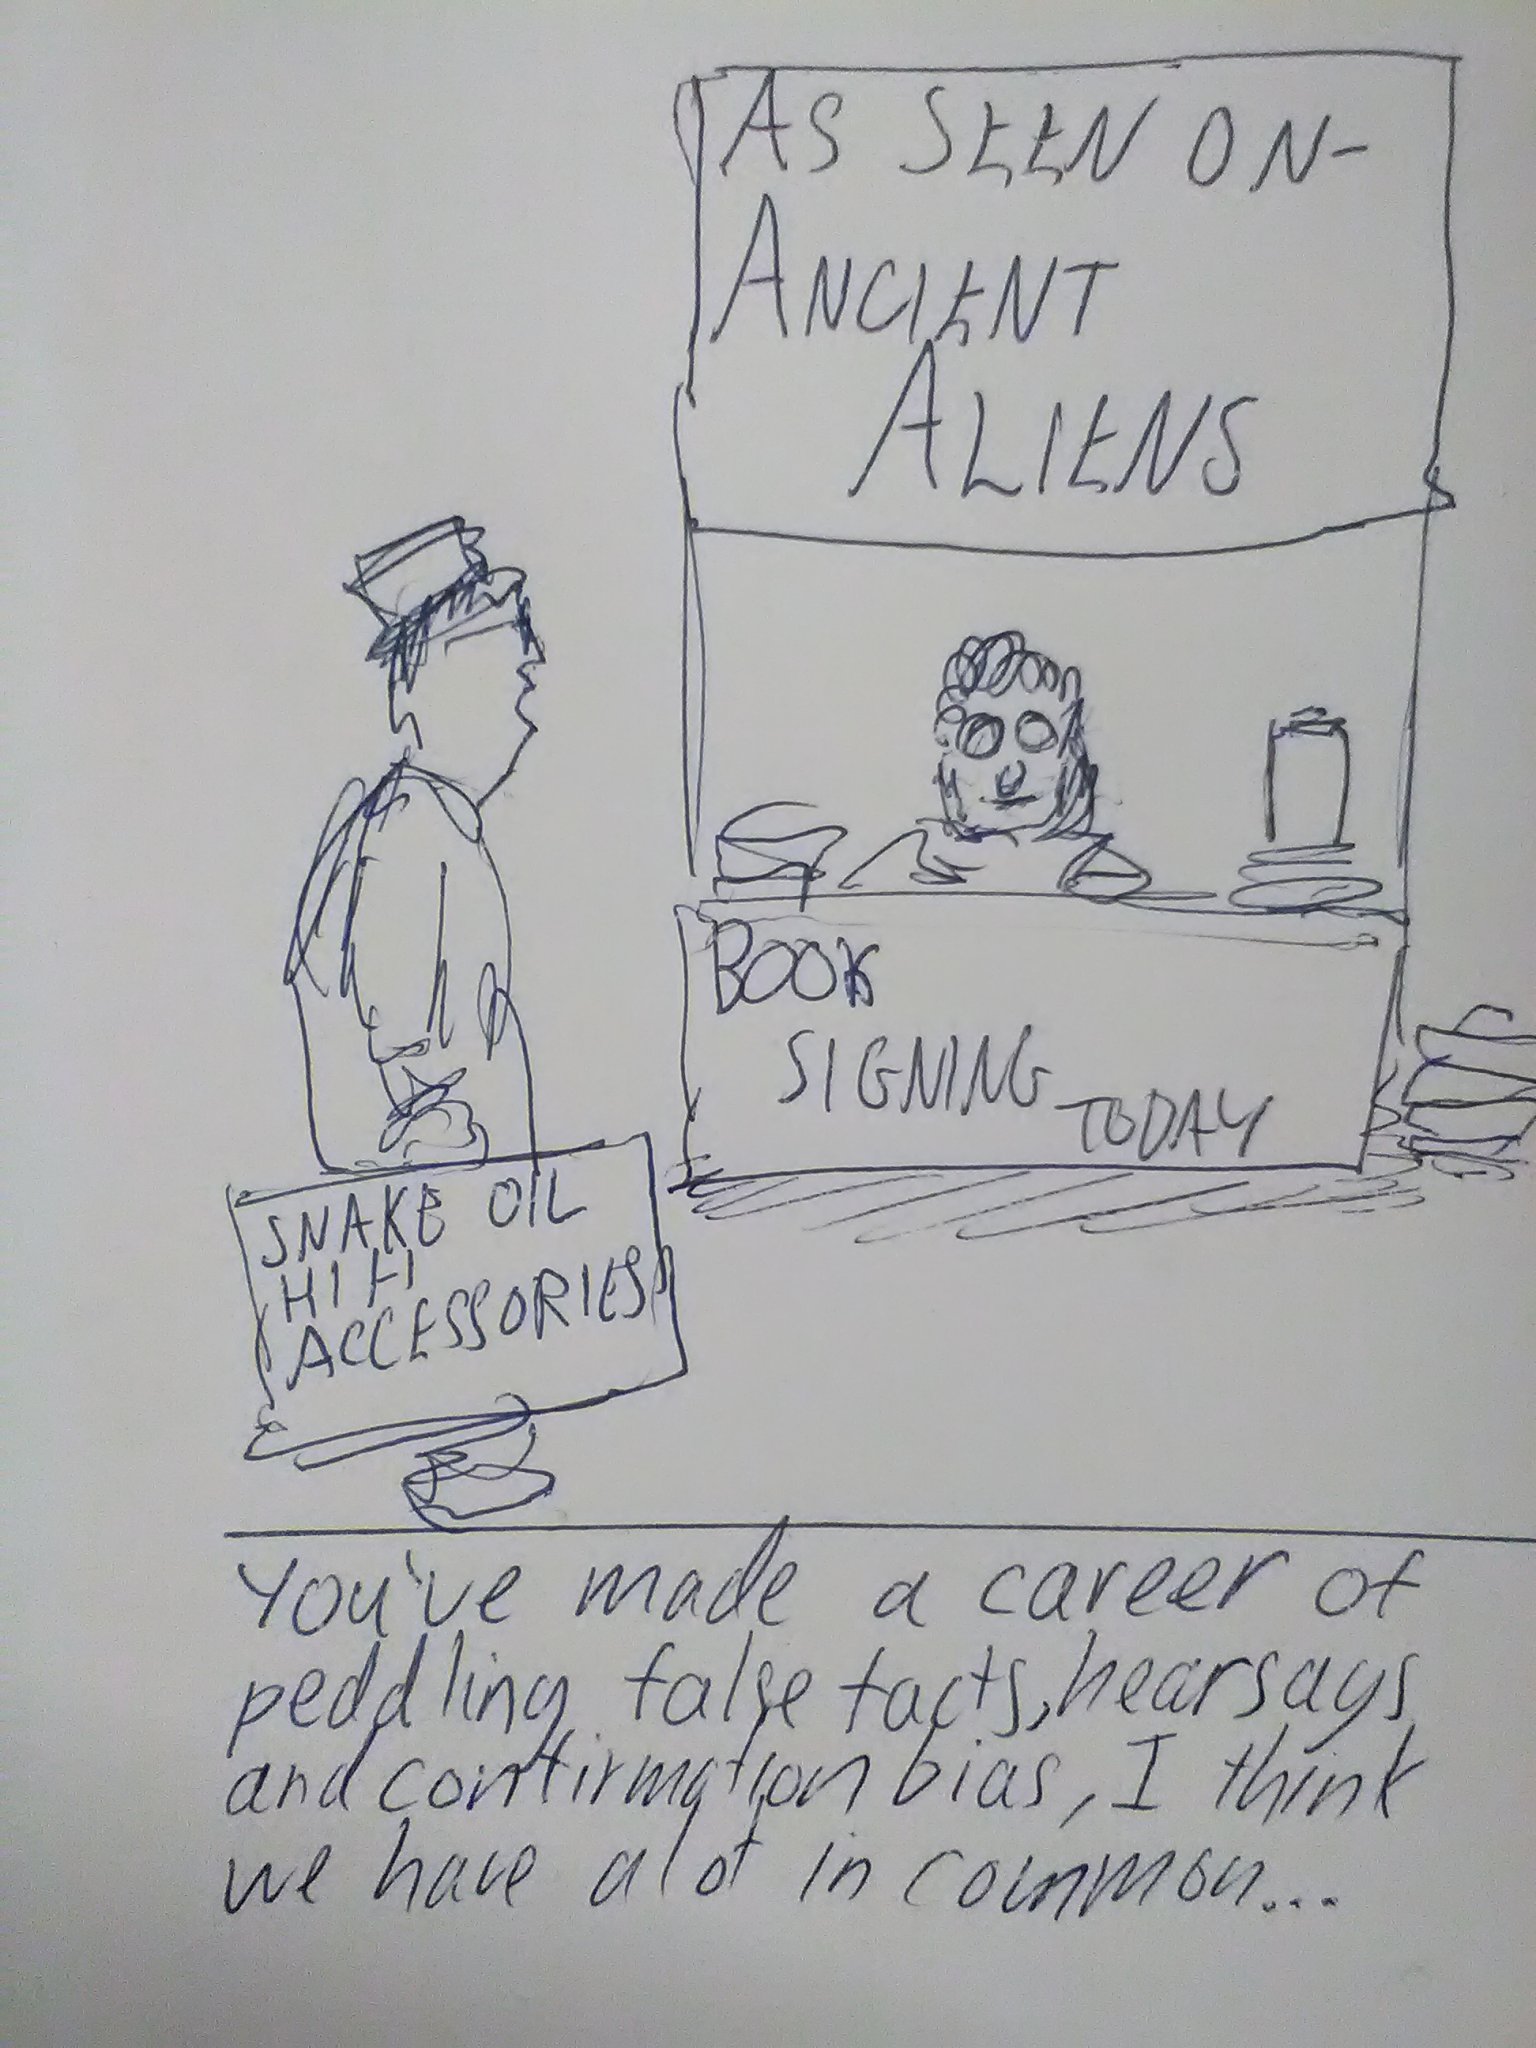 AS SEEN ON-
ANCIENT
ALIENS
BOOK
SIGNING
TODAY
SNAKE OIL
HI FI
ACCESSORIES
You've made a career of
peddling false facts, hearsays
and confirmation bias, I think
we have a lot in common...